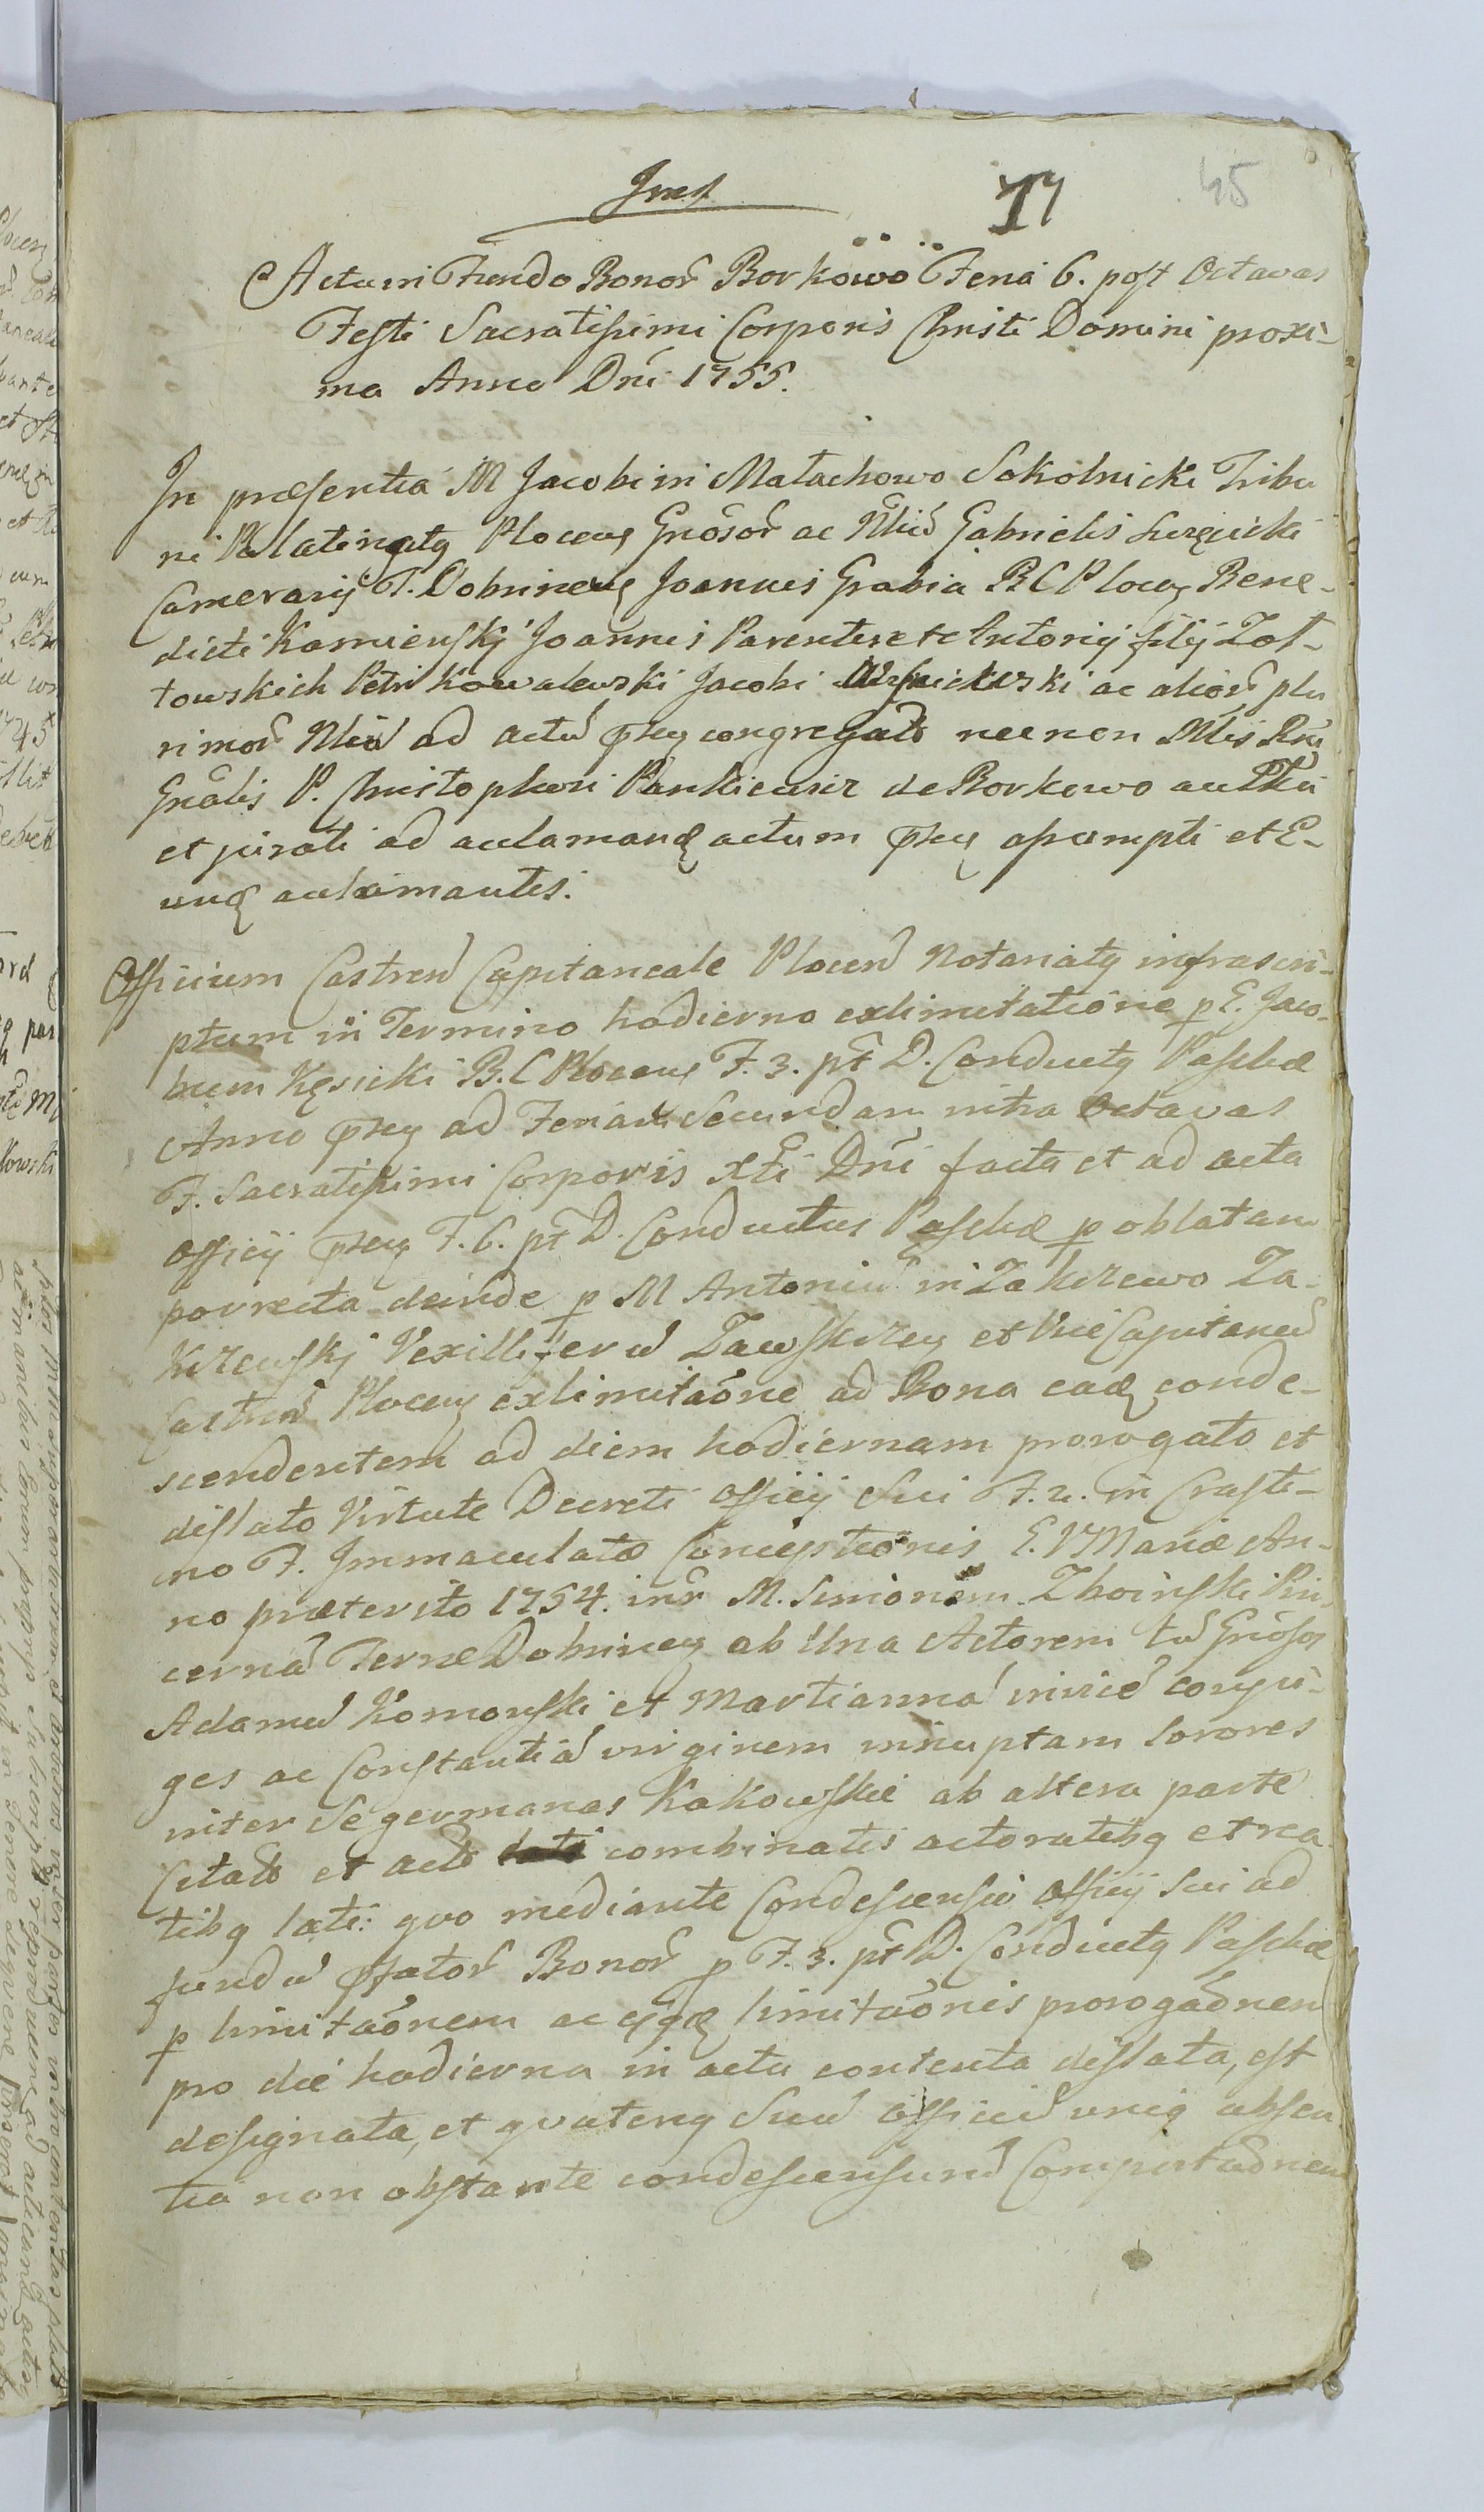 17 45
Actum in Fundo Bonor̃ Borkowo Feria 6. post Octavas
Festi Sacratissimi Corporis Christi Domini proxi-
ma Anno Dñi 1755.
In præsentia M Jacobi in Małachowo Sokolnicki Tribu
ni Palatinatq Plocenq Gñosor̃ ac Nliũ Gabrielis
Camerarij T. Dobrinenq Joannis Grabia B C Plocenq Bene-
dicti Kamienskj Joannis Parentis et Antonij filij Żoł-
towskich Petri Kowalewski Jacobi ac alior̃ plu
rimor̃ Nliũ ad actũ pñq congregat necnon Mlis Rni
Gñalis P. Christophori Pankiewicz de Borkowo
et jurati ad acclamandq actum pñq assumpti et E-
undq acclamantis.
Officium Castren Capitaneale Plocen Notariatq infrascri-
ptum in Termino hodierno exlimitatione p E. Jaco-
bum Kęsicki B. C Plocenq F. 3. pt D. Conductq Paschæ
Anno pñq ad Feriam Secundam intra Octavas
F. Sacratissimi Corporis Xti Dñi facta et ad acta
officij pñq F. 6. pt D. Conductus Paschæ p oblatam
porrecta deinde p M Antoniũ in Zakrzewo Za-
krzewskj Vexilliferũ Zawskrzenq et ViceCapitaneũ
Castren Plocenq exlimitaõne ad Bona eadq conde-
scendentem ad diem hodiernam prorogato et
dislato Virtute Decreti officij Sui F. 2. in Crasti-
no F. Immaculatæ Conceptionis E. V Mariæ An-
no præterito 1754. intr M. Simonem Zboinski Pin
cernã Terræ Dobrinenq ab Una Actorem tũ Gñosos
Adamũ Komorski et Martiannã invicẽ conju-
ges ac Constantiã virginem innuptam Sorores
inter Se germanas Kakowskie ab altera parte
Citat et act combinatis actoratibq et rea
tibq lati: quo mediante Condescensio officij Sui ad
fundũ pfator̃ Bonor̃ p F. 3. pt D. Conductq Paschæ
p limitaõnem ac ejqdq limitaõnis prorogaõnem
pro die hodierna in actu contenta dislata, est
designata, et quatenq Suũ officiũ uniq absen
tia non obstante condescensurũ Comportaõnem